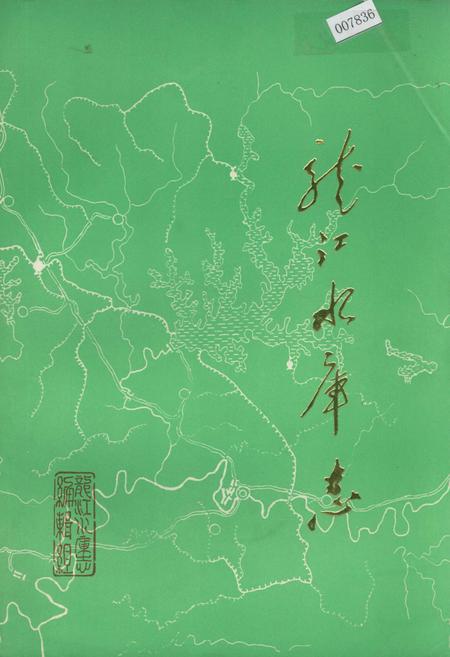 007836
龍江水库志
龍江水庫志
編輯組